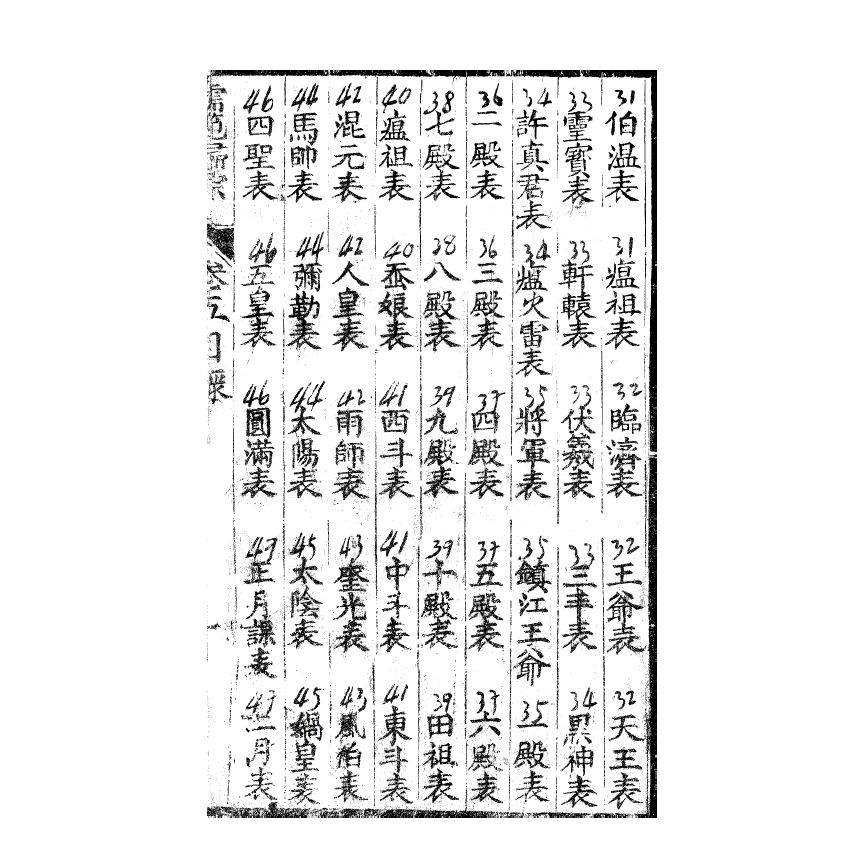 31伯温表 31瘟祖表 32臨濟表 32王爺表 32天王表
33靈寶表 33軒轅表 33伏羲表 33三丰表 34異神表
34許真君表 34瘟火雷表 35將軍表 35鎮江王爺 35一殿表
36二殿表 36三殿表 37四殿表 37五殿表 37六殿表
38七殿表 38八殿表 39九殿表 39十殿表 39田祖表
40瘟祖表 40蚕娘表 41西斗表 41中斗表 41東斗表
42混元表 42人皇表 42雨師表 43奎光表 43風伯表
44馬帥表 44彌勒表 44太陽表 45太陰表 45媧皇表
46四聖表 46五皇表 46圓滿表 47正月課表 47二月表
卷五目錄